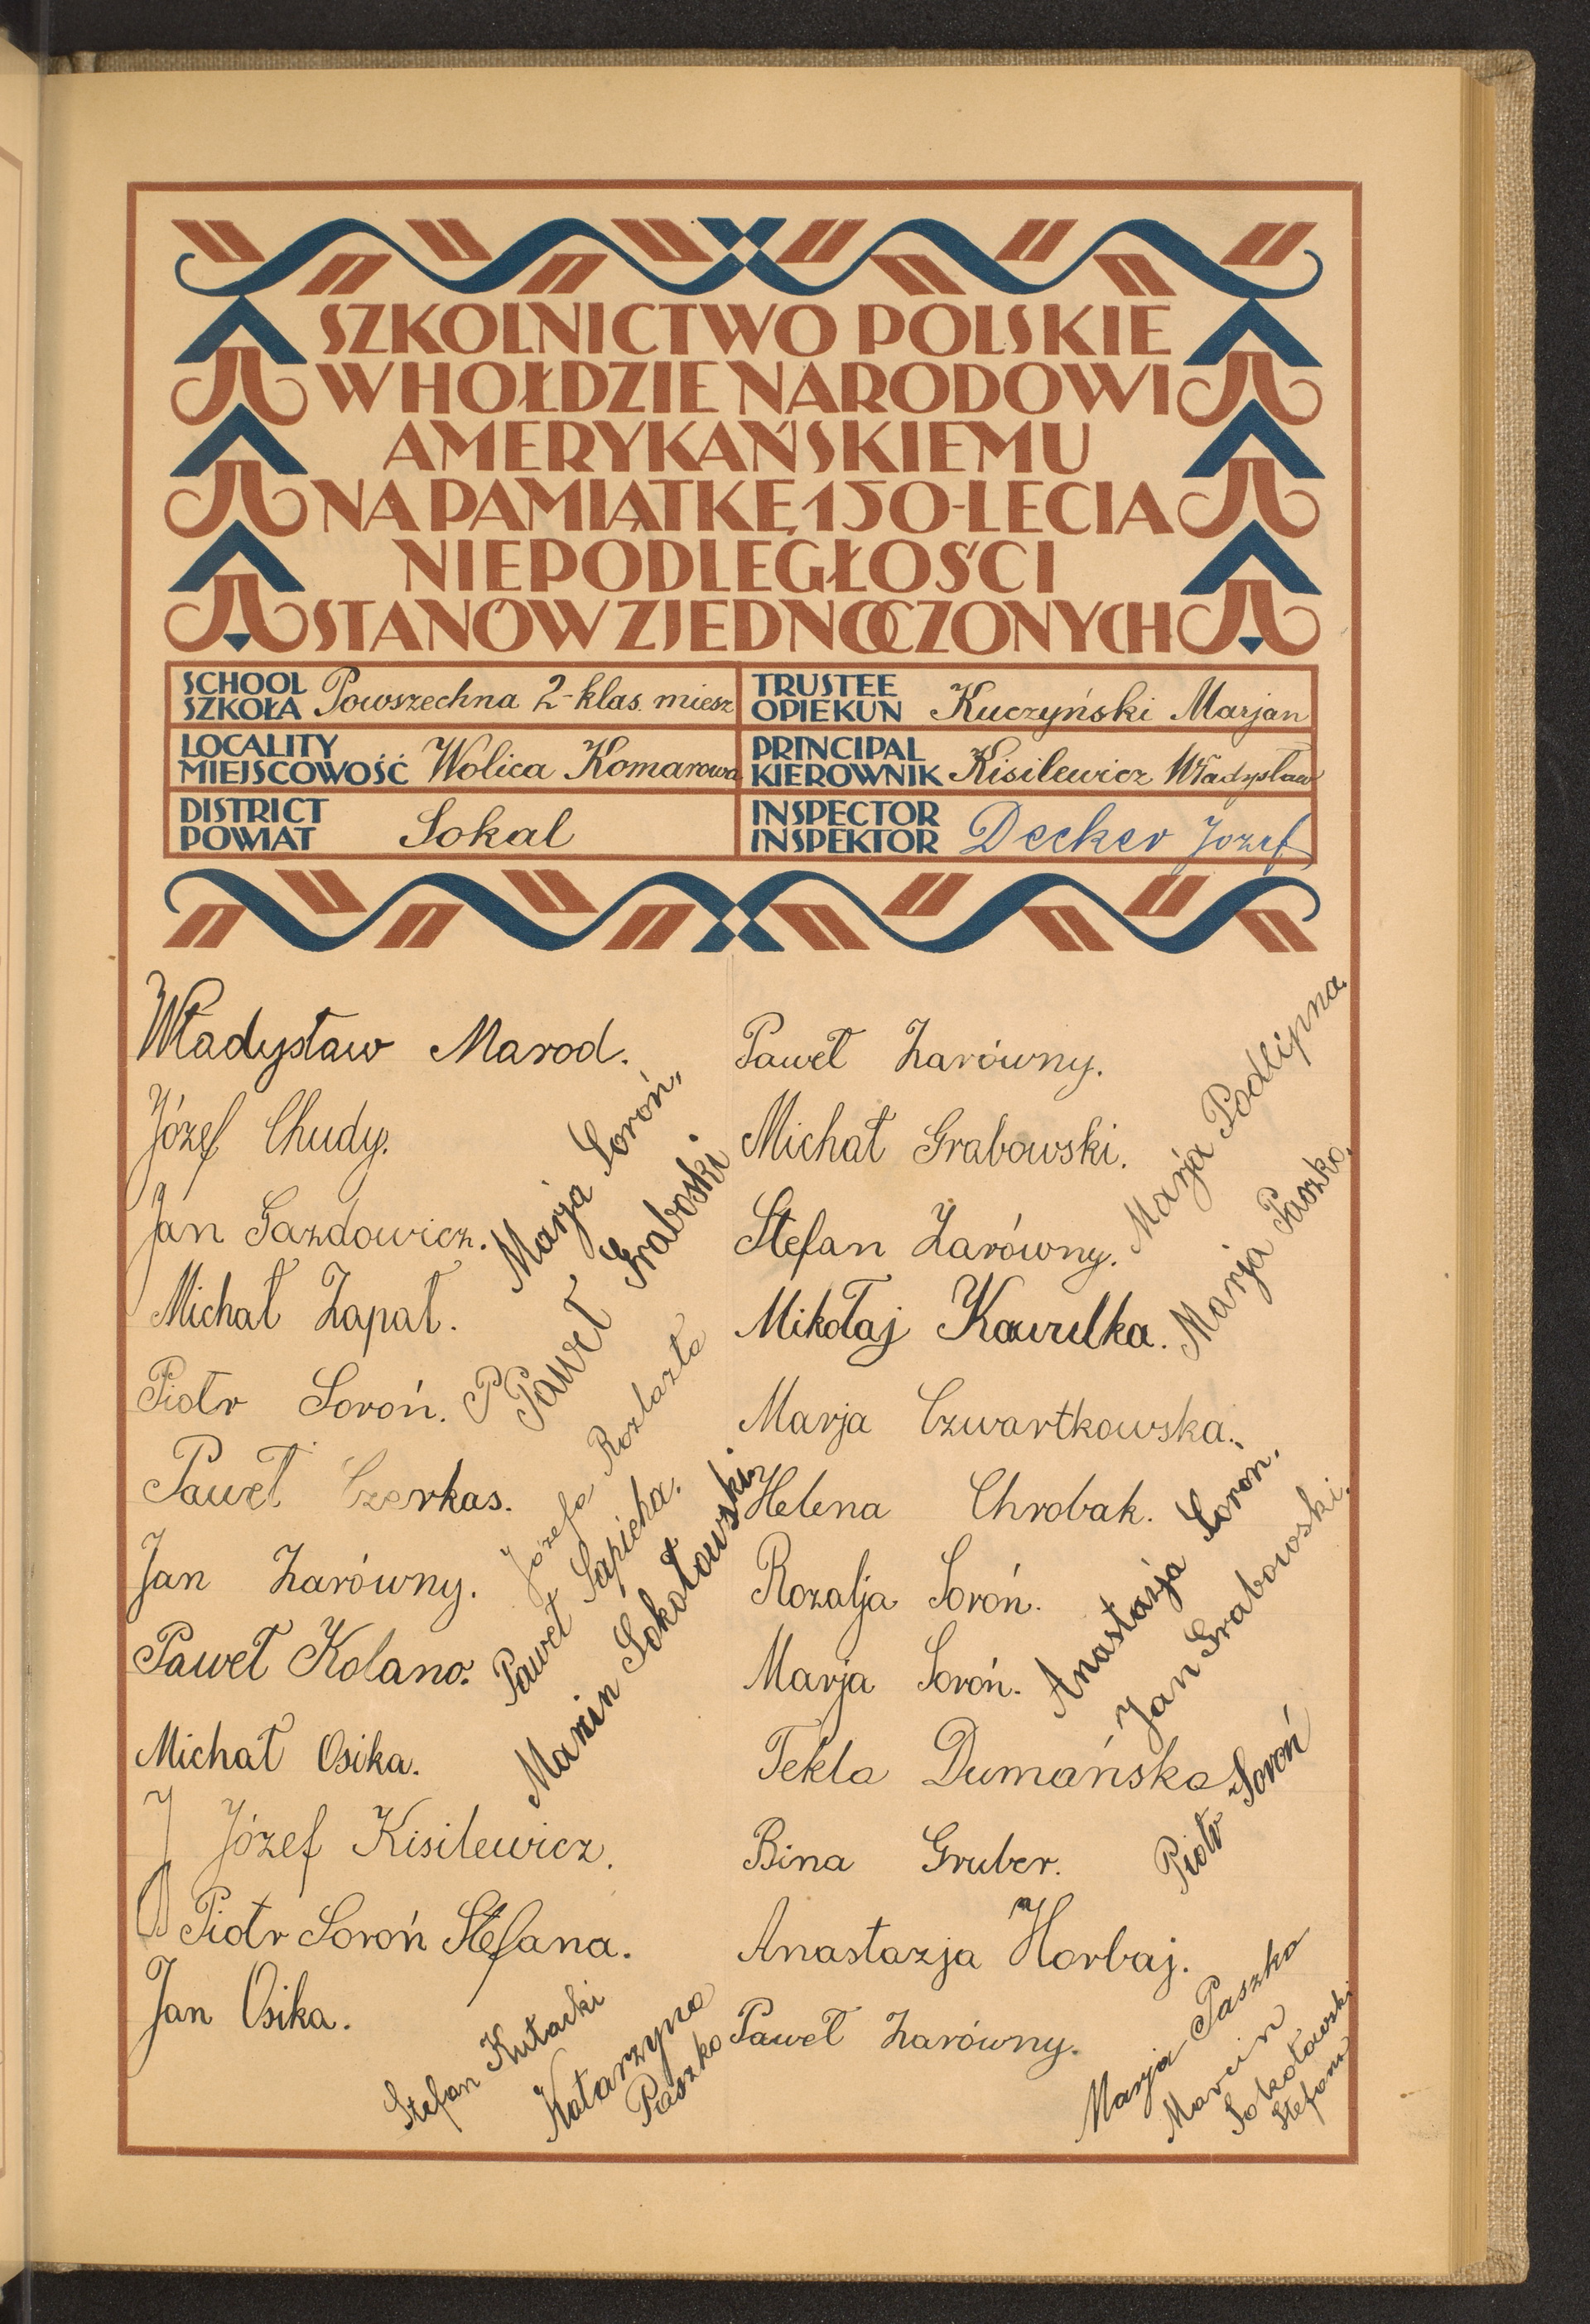 SZKOLNICTWO POLSKIE
W HOŁDZIE NARODOWI
AMERYKAŃSKIEMU
NA PAMIĄTKĘ 150-LECIA
NIEPODLEGŁOŚCI
STANÓW ZJEDNOCZONYCH
SCHOOL
SZKOŁA Powszechna 2-klas. miesz
LOCALITY
MIEJSCOWOŚĆ Wolica Komarowa
DISTRICT
POWIAT Sokal
TRUSTEE
OPIEKUN Kuczyński Marjan
PRINCIPAL
KIEROWNIK Kisilewicz Władysław
INSPECTOR
INSPEKTOR Decker Józef
Władysław Marod.
Józef Chudy.
Jan Gazdowicz.
Michał Zapał.
Piotr Soroń.
Paweł Czerkas.
Jan Zarówny.
Paweł Kolano.
Michał Osika.
J Józef Kisilewicz.
Piotr Soroń Stefana.
Jan Osika.
Marja Soroń,
P Paweł Graboski
Józefa Rozlazła
Paweł Sapieha.
Marcin Sokołowski.
Stefan Kutacki
Katarzyna
Paszko
Paweł Zarówny.
Michał Grabowski.
Stefan Zarówny.
Mikołaj Kawulka.
Marja Czwartkowska.
Helena Chrobak.
Rozalja Soroń.
Marja Soroń.
Tekla Dumańska
Bina Gruber.
Anastazja Horbaj.
Paweł Zarówny.
Marja Podlipna.
Marja Paszko.
Anastazja Soroń.
Jan Grabowoski.
Piotr Soroń
Marja Paszko
Marcin
Sokołowski
Stefana